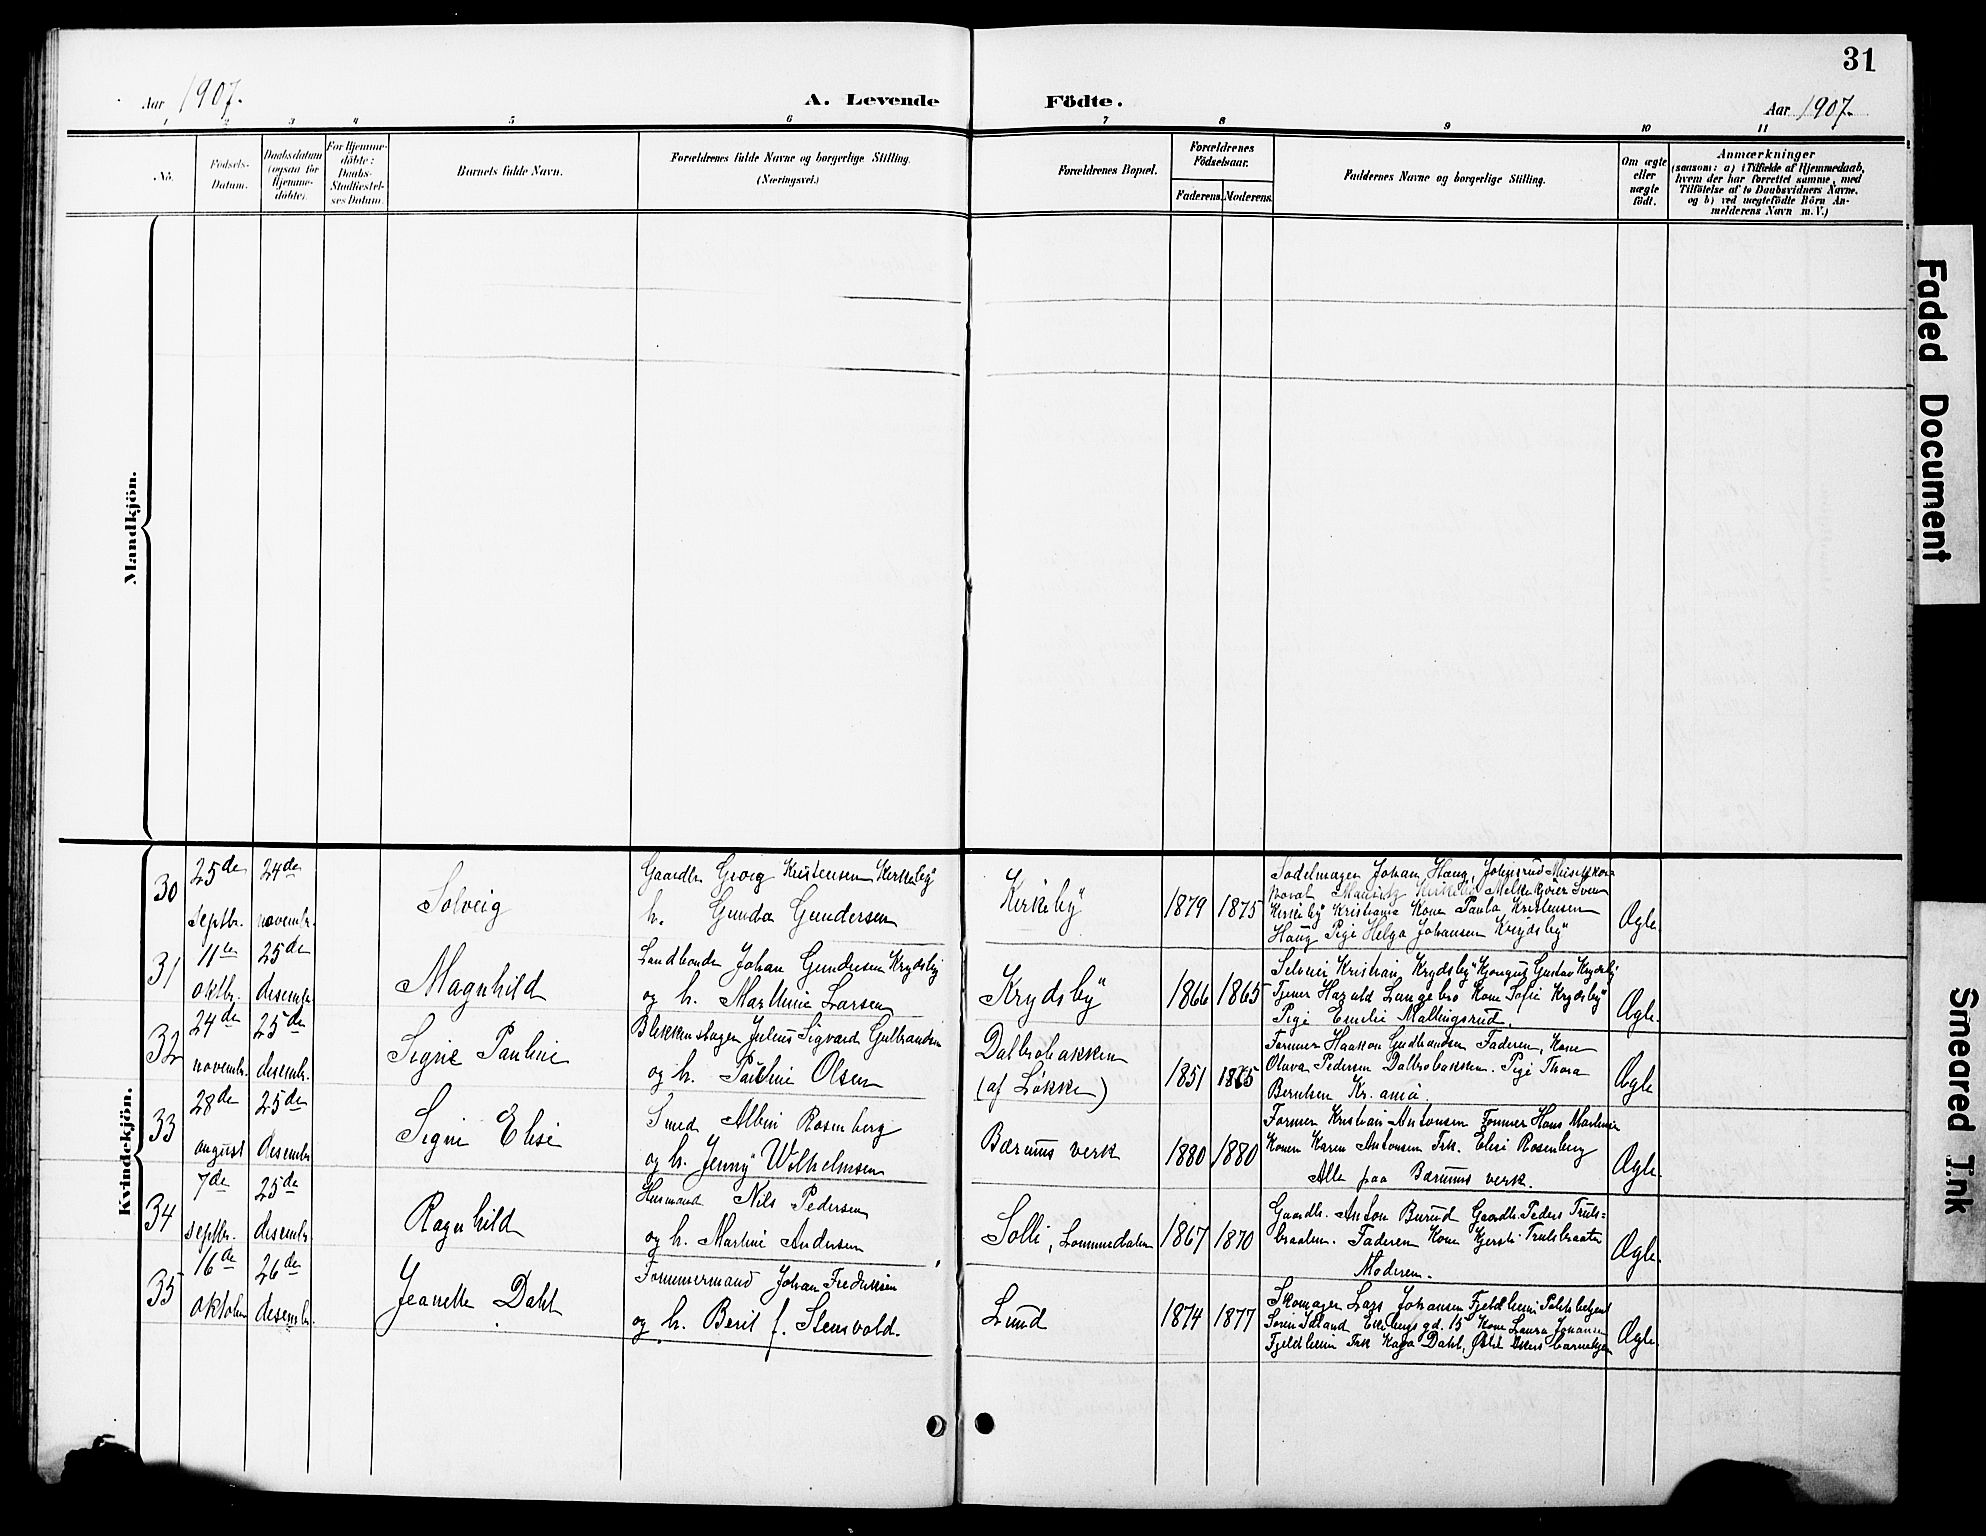 31
Aar 1907.
A. Levende Födte.
Aar 1907.
1 2 3 4 5 6 7 8 9 10 11
No.
Fødsels-
Datum.
Daabsdatum
(ogsaa for
Hjemme-
döbte).
For Hjemme-
döbte:
Daabs-
Stadfæstel-
ses Datum.
Barnets fulde Navn.
Forældrenes fulde Navne og borgerlige Stilling.
(Næringsvei.)
Forældrenes Bopæl.
Forældrenes
Födselsaar.
Faderens. Moderens.
Faddernes Navne og borgerlige Stilling.
Om ægte
eller
uægte
født.
Anmærkninger
(saasom: a) i Tilfælde af Hjemmedaab,
hvem der har forrettet samme, med
Tilföielse af to Daabsvidners Navne,
og b) ved uægtefödte Börn An-
melderens Navn m. V.)
Mandkjön.
Kvindekjön.
30
25de
septbr.
24de
novembr.
Solveig
Gaardbr. Georg Kristensen Kirkeby
h. Gunda Gundersen
Kirkeby
1879
1875
Sadelmager Johan Haug,
Kirkeby Kristiania Kone Paula Kristensen
Haug Pige Helga Johansen Krydsby
Ægte.
31
11te
oktbr.
25de
desembr.
Magnhild
Landbonde Johan Gundersen Krydsby
og h. Mathilde Larsen
Krydsby
1866
1865
Selveier Kristian Krydsby Gustav Krydsby
Tjener Harald Langebro Kone Sofie Krydsby
Pige Emilie Mallingsrud.
Ægte.
32
24de
novembr.
25de
desembr.
Signe Pauline
Blikkenslager Julius Sigvard Gulbrandsen
og h. Pauline Olsen
Dalbobakken
(af Løkke)
1851
1865
Former Haakon Gudbrandsen Faderen, Kone
Olava Pedersen Dalbobakken. Pige Thora
Berntsen Kr.ania
Ægte
33
28de
august
25de
desembr
Signe Elise
Smed Albin Rosenberg
og h. Jenny Wilhelmsen
Bærums verk
1880
1880
Former Kristian Antonsen Former Hans Martinsen
Konen Karen Antonsen Frk. Elise Rosenberg
Alle paa Bærums verk.
Ægte.
34
7de
septbr.
25de
desembr.
Ragnhild
Husmand Nils Pedersen
og h. Martine Andersen
Solli, Lommedalen
1867
1870
Gaardb. Anton Burud Gaardb. Peder Truls=
braaten. Faderen Kone Kjersti Trulsbraaten
Moderen.
Ægte.
35
16de
oktober
26de
desembr.
Jeanette Dahl
Tømmermand Johan Fredriksen
og h. Berit f. Stensvold.
Lund
1874
1877
Skomager Lars Johansen Fjeldheim Politibetjent
Eilertsens gd. 15 Kone Laura Johansen
Fjeldheim Frk Kaja Dahl,
Ægte.
Faded Document
Smeared Ink